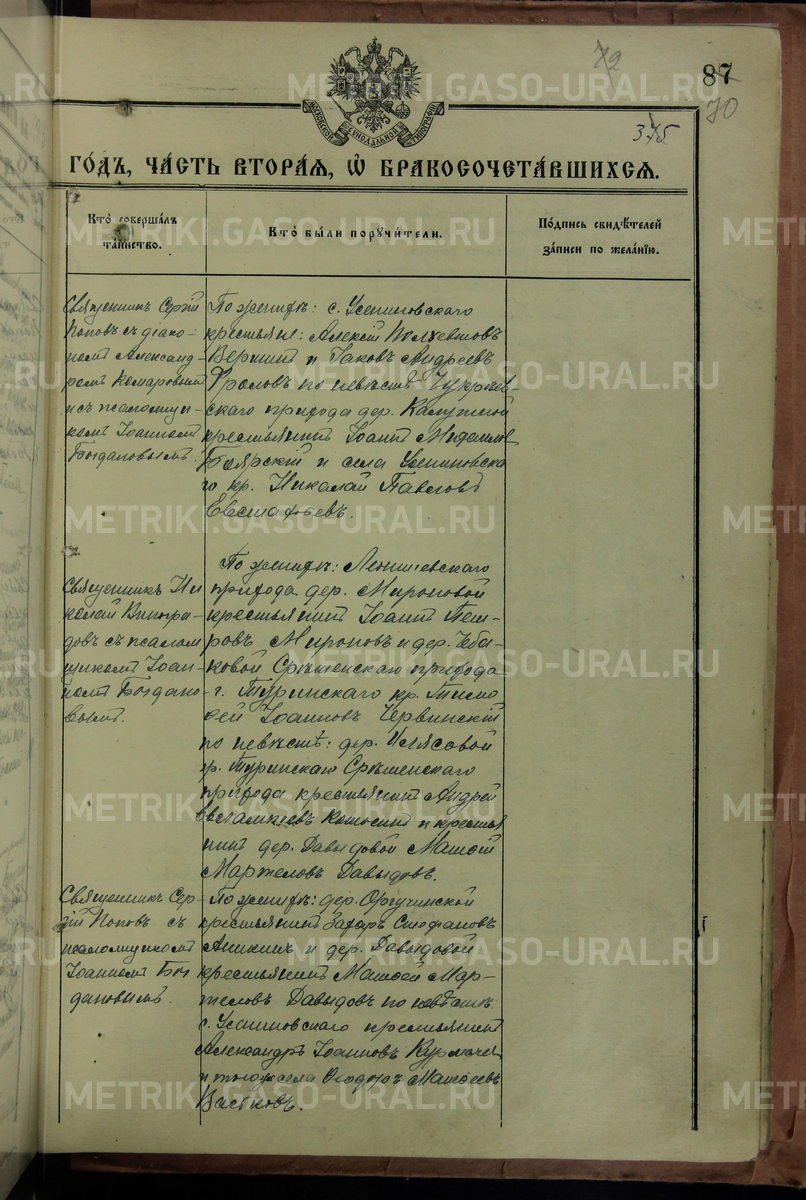 72
87
70
375
МОСКОВСКОЙ СѴНОДАЛЬНОЙ ТИПОГРАФІИ
ГО́ДЪ, ЧА́СТЬ ВТОРА́Ѧ, Ѽ БРАКОСОЧЕТА́ВШИХСѦ.
Кто̀ соверша́лъ
та́инство.
Кто̀ бы́ли порꙋчи́тели.
По́дпись свидѣ́телей
за́писи по жела́нїю.
Священникъ Сергій
Поповъ съ діако-
номъ Александ-
ромъ Комаровымъ
и съ псаломщи-
комъ Іоанномъ
Богдановымъ.
По женихѣ: с. Усениновскаго
крестьяне: Алексій
Вершининъ и Іаковъ Андреевъ
Фроловъ по невѣстѣ
скаго прихода дер. Калугиной
крестьянинъ Іоаннъ Михаиловъ
Боярскій и села Усениновска
го кр. Николай Павловъ
Евстафьевъ.
Священникъ Ни
колай Виногра-
довъ съ псалом
щикомъ Іоан-
номъ Богдано
вымъ.
По женихѣ: Леонтьевскаго
прихода дер. Мироновой
крестьянинъ Іоаннъ Пет-
ровъ Мироновъ и дер. Чеба-
ковой Срѣтенскаго прихода
г. Туринскаго кр. Тимо
ѳей Іоанновъ Червинскій
по невѣстѣ: дер. Илясовой
г. Туринскаго Срѣтенскаго
прихода крестьянинъ Андрей
и крестья
нинъ дер. Давыдовой Матѳей
Мартеловъ Давыдовъ.
Священникъ Сер-
гій Поповъ съ
псаломщикомъ
Іоанномъ Бог
дановымъ.
По женихѣ: дер.
крестьянинъ Захаръ Стефановъ
Аникинъ и дер. Давыдовой
крестьянинъ Матѳей Мар-
теловъ Давыдовъ по невѣстѣ
с. Усениновскаго крестьянинъ
Александръ Іоанновъ Курмачев
и того же села Ѳеодоръ Матѳеевъ
METRIKI.GASO-URAL.RU